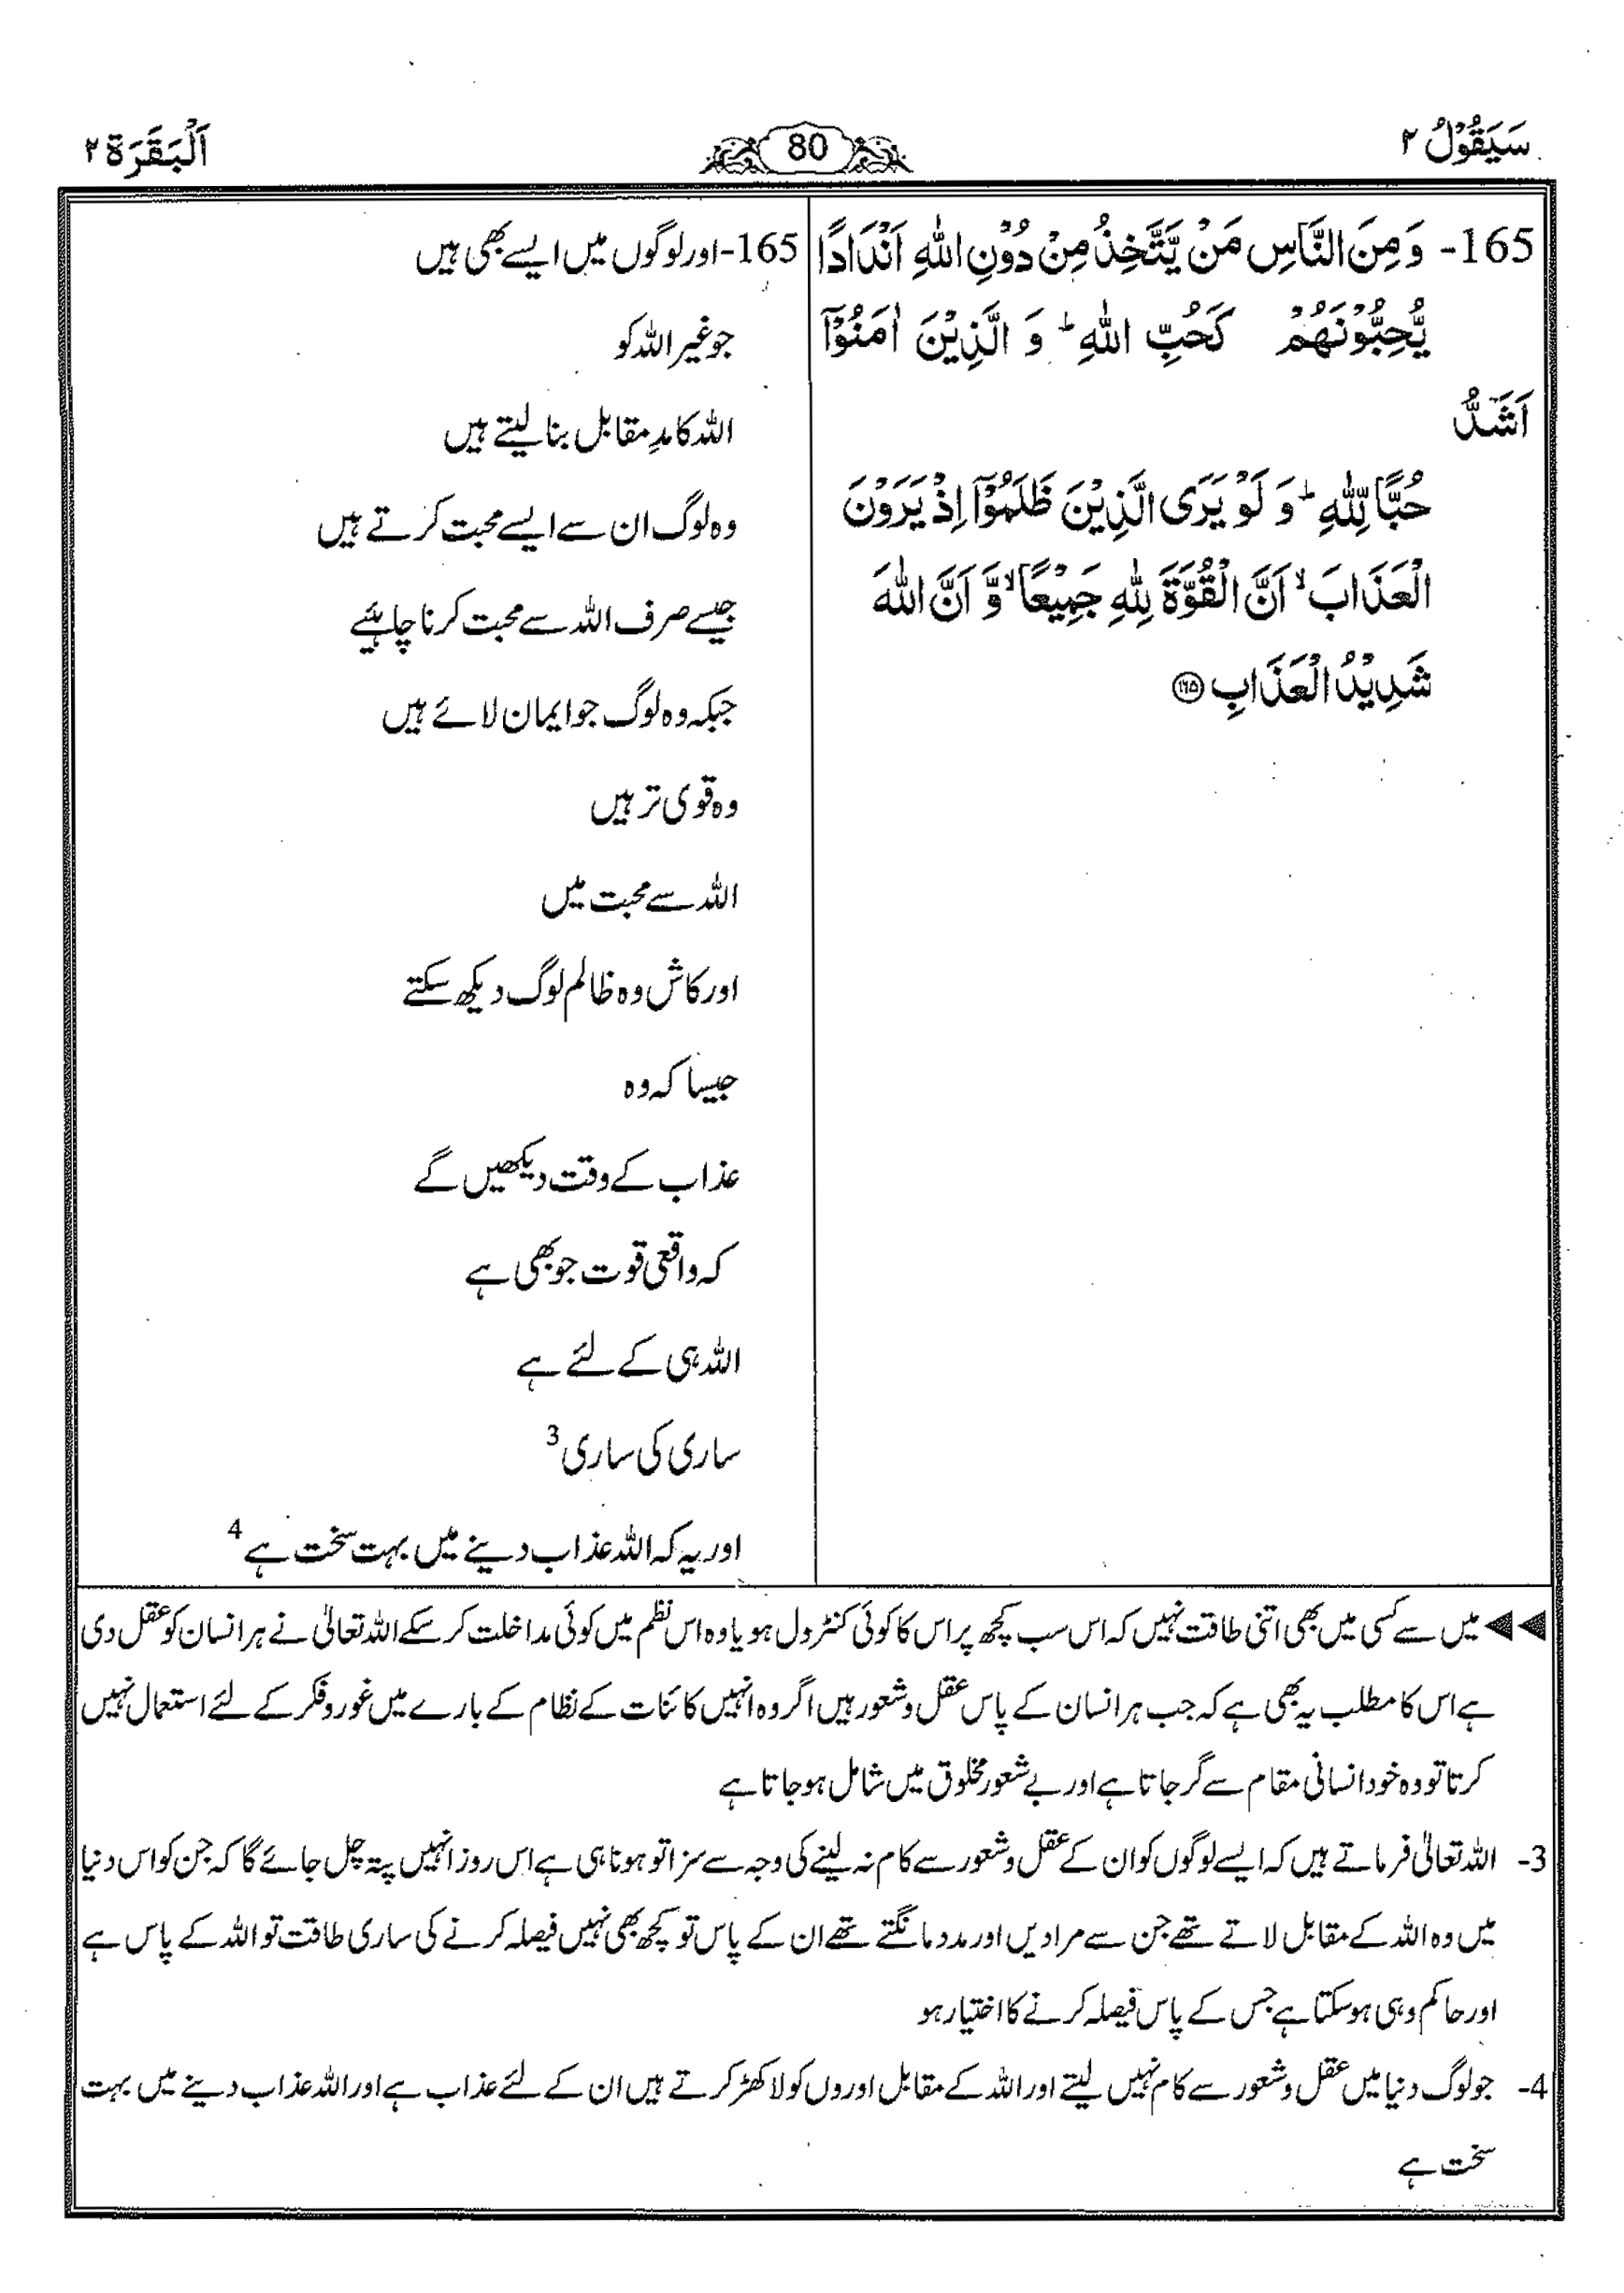 سَيَقُوْلُ ٢
80
اَلْبَقَرَة ٢
165- وَ مِنَ النَّاسِ مَنْ يَّتَّخِذُ مِنْ دُوْنِ اللّٰهِ اَنْدَادًا
يُّحِبُّوْنَهُمْ كَحُبِّ اللّٰهِ ؕ وَ الَّذِيْنَ اٰمَنُوْۤا
اَشَدُّ
حُبًّا لِّلّٰهِ ؕ وَ لَوْ يَرَى الَّذِيْنَ ظَلَمُوْۤا اِذْ يَرَوْنَ
الْعَذَابَ ۙ اَنَّ الْقُوَّةَ لِلّٰهِ جَمِيْعًا ۙ وَّ اَنَّ اللّٰهَ
شَدِيْدُ الْعَذَابِ ﴿۱۶۵﴾
165- اور لوگوں میں ایسے بھی ہیں
جو غیر اللہ کو
اللہ کا مدِ مقابل بنا لیتے ہیں
وہ لوگ ان سے ایسے محبت کرتے ہیں
جیسے صرف اللہ سے محبت کرنا چاہیئے
جبکہ وہ لوگ جو ایمان لائے ہیں
وہ قوی تر ہیں
اللہ سے محبت میں
اور کاش وہ ظالم لوگ دیکھ سکتے
جیسا کہ وہ
عذاب کے وقت دیکھیں گے
کہ واقعی قوت جو بھی ہے
اللہ ہی کے لئے ہے
ساری کی ساری 3
اور یہ کہ اللہ عذاب دینے میں بہت سخت ہے 4
◄◄ میں سے کسی میں بھی اتنی طاقت نہیں کہ اس سب کچھ پر اس کا کوئی کنٹرول ہو یا وہ اس نظم میں کوئی مداخلت کر سکے اللہ تعالیٰ نے ہر انسان کو عقل دی
ہے اس کا مطلب یہ بھی ہے کہ جب ہر انسان کے پاس عقل و شعور ہیں اگر وہ انہیں کائنات کے نظام کے بارے میں غور و فکر کے لئے استعمال نہیں
کرتا تو وہ خود انسانی مقام سے گر جاتا ہے اور بے شعور مخلوق میں شامل ہو جاتا ہے
3- اللہ تعالیٰ فرماتے ہیں کہ ایسے لوگوں کو ان کے عقل و شعور سے کام نہ لینے کی وجہ سے سزا تو ہونا ہی ہے اس روز انہیں پتہ چل جائے گا کہ جن کو اس دنیا
میں وہ اللہ کے مقابل لاتے تھے جن سے مرادیں اور مدد مانگتے تھے ان کے پاس تو کچھ بھی نہیں فیصلہ کرنے کی ساری طاقت تو اللہ کے پاس ہے
اور حاکم وہی ہو سکتا ہے جس کے پاس فیصلہ کرنے کا اختیار ہو
4- جو لوگ دنیا میں عقل و شعور سے کام نہیں لیتے اور اللہ کے مقابل اوروں کو لا کھڑ کرتے ہیں ان کے لئے عذاب ہے اور اللہ عذاب دینے میں بہت
سخت ہے